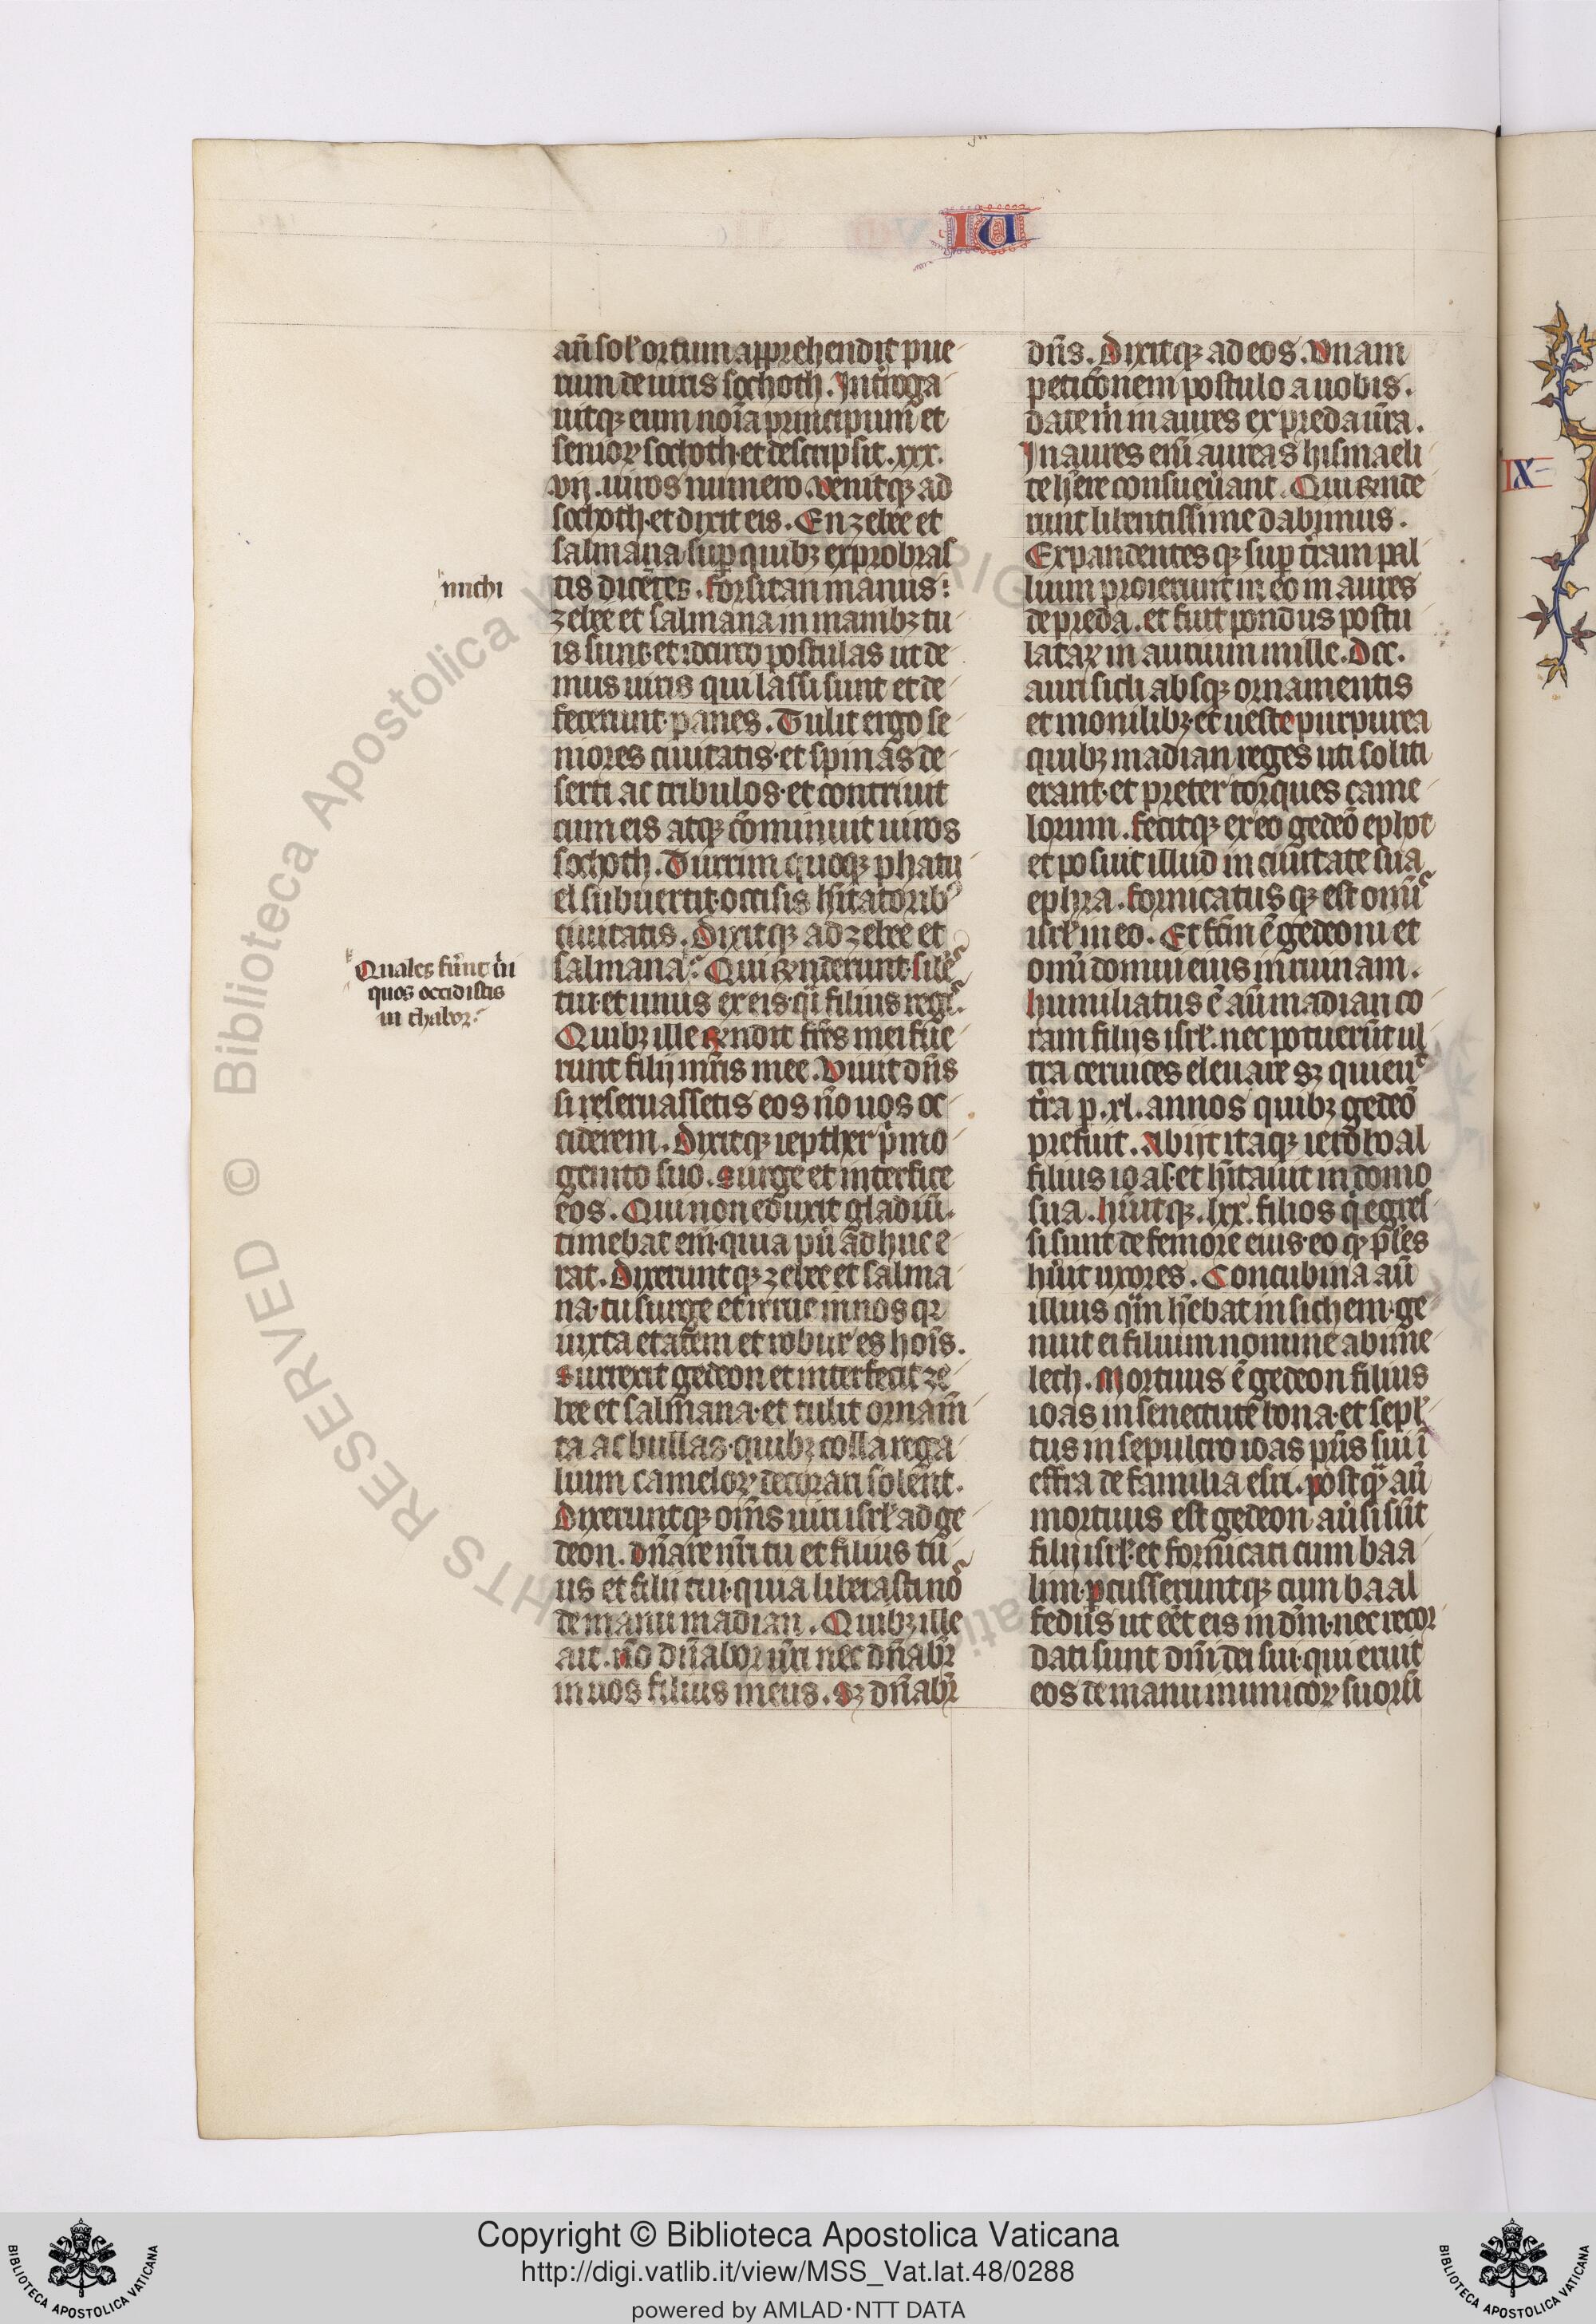 IU
añ sol' ortum apprehendit pue
rum de uiris sochoth. Int'roga
uitqz eum noı̄a principum et
senioꝝ sochoth· et descripsit .xxx.
vij. uiros numero. Venitqz ad
sochoth· et dixit eis. En zebee et
salmana sup quibz exprobras
michi
tis dicētes. forsitan manus
zebee et salmana in manibz tu
is sunt· et idcirco postulas ut de
mus uiris qui lassi sunt et de
fecerunt· panes. Tulit ergo se
niores ciuitatis· et spinas de
serti ac tribulos· et contriuit
cum eis atqz cōminuit uiros
sochoth. Turrim quoqz phanu
el subuertit· occisis hı̄tatorib⁹
ciuitatis. Dixitqz ad zebee et
Quales fūnt uı̄i
quos occidistis
in thabor
salmana. Qui rñderunt· sił'es
tui· et unus ex eis· qı̄ filius reg̃.
Quibz ille rñdit fr̄es mei fue
runt filij mr̄is mee. Viuit dn̄s
si reseruassetis eos nō uos oc
ciderem. Dixitqz iepther p̄mo
genito suo. Surge et interfice
eos. Qui non eduxit gladiū.
timebat enı̄· quia pū adhuc e
rat. Dixeruntqz zebee et salma
na· tu surge et irrue in nos qr
iuxta etatem et robur es hoı̄s.
Surrexit gedeon et interfecit ze
bee et salmana· et tulit ornam̄
ta ac bullas· quibz colla rega
lium cameloꝝ decorari solent.
Dixeruntqz om̄s uiri isrł ad ge
deon. Dn̄are nr̄i tu et filius tu
us et filii tui· quia liberasti nos
de manu madian. Quibz ille
ait. nō dn̄abor ur̄i nec dn̄abr
in uos filius meus. Sz dn̄abr
dn̄s. Dixitqz ad eos. Vnam
peticōnem postulo a uobis.
date m̄ inaures ex preda ur̄a.
Inaures enı̄ aureas hismaeli
te h̄ere consueuāt. Qui rñde
runt libentissime dabimus.
Expandentesqz sup t'ram pal
lium proiecerunt in eo inaures
de preda. et fuit pondus postu
lataꝝ inaurium mille. Dcc.
auri sicli absqz ornamentis
et monilibz et ueste purpurea
quibz madian reges uti soliti
erant· et preter torques came
lorum. fecitqz ex eo gedeō ephot
et posuit illud in ciuitate sua
ephra. fornicatusqz est omı̄s
isrł in eo. Et fc̄m ē gedeoni et
omı̄ domui eius in ruinam.
humiliatus ē aū madian co
ram filijs isrł. nec potuerūt ul
tra ceruices eleuare sz quieuit
t'ra p .xl. annos quibz gedeō
prefuit. Abijt itaqz ieroboal
filius ioas· et hı̄tauit in domo
sua. h̄uitqz .lxx. filios q̇ egres
si sunt de femore eius· eo qꝫ pl'es
h̄uit uxores. Concubina aū
illius q̄m h̄ebat in sichem· ge
nuit ei filium nomine abime
lech. Mortuus ē gedeon filius
ioas in senectute bona· et sepł
tus in sepulcro ioas pr̄is sui ı̄
effra de familia esri. postqȝ aū
mortuus est gedeon· auersi sūt
filij isrł· et fornicati cum baa
lim· p̄cusseruntqz cum baal
fedus ut eēt eis in dm̄· nec recor
dati sunt dn̄i dei sui· qui eruit
eos de manu inimicoꝝ suorū
IX
© Biblioteca Apostolica Vaticana
RIGHTS RESERVED
Copyright © Biblioteca Apostolica Vaticana
http://digi.vatlib.it/view/MSS_Vat.lat.48/0288
powered by AMLAD·NTT DATA
BIBLIOTECA APOSTOLICA VATICANA
BIBLIOTECA APOSTOLICA VATICANA